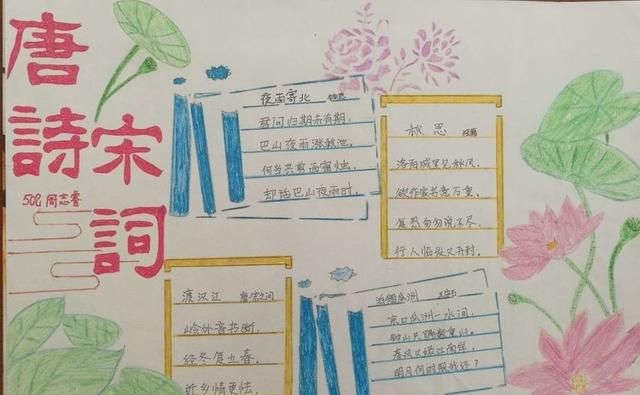 唐詩
宋詞
502 周志睿
夜雨寄北
君问归期未有期,
巴山夜雨涨秋池,
何当共剪西窗烛,
却话巴山夜雨时,
秋思 张籍
洛阳城里见秋风,
欲作家书意万重,
复恐匆匆说不尽,
行人临发又开封,
渡汉江 唐·宋之问
岭外音书断,
经冬复立春,
近乡情更怯,
泊船瓜洲
京口瓜洲一水间,
钟山只隔数重山,
春风又绿江南岸,
明月何时照我还?